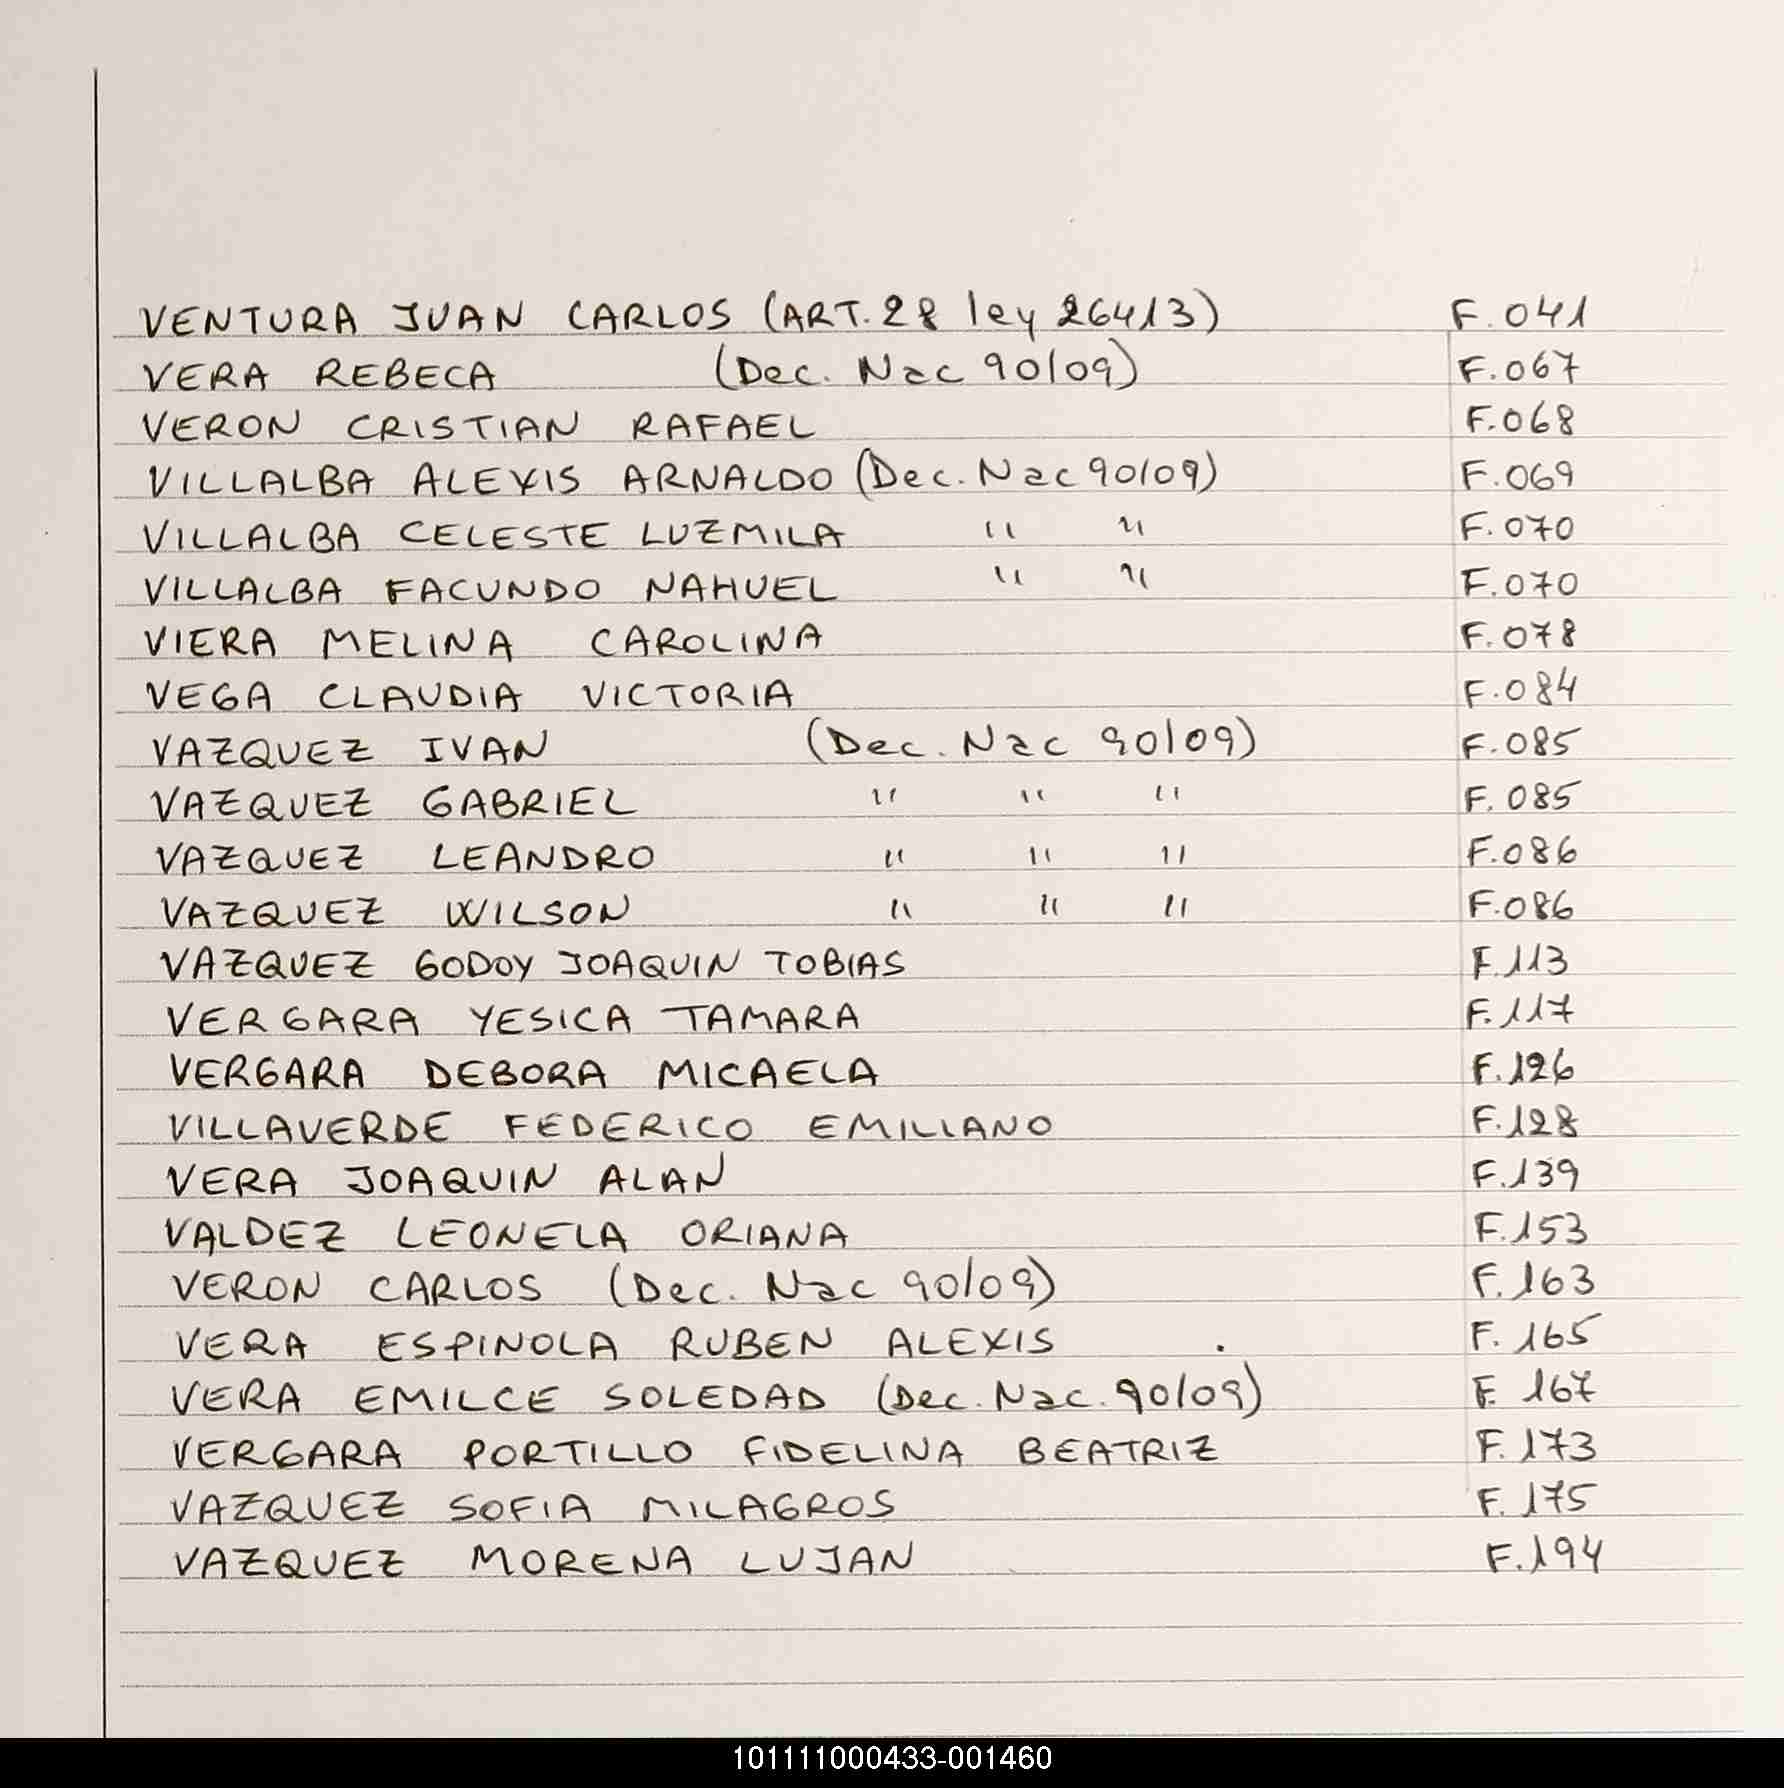 VENTURA JUAN CARLOS (ART. 28 ley 26413) F. 041
VERA REBECA (Dec. Nac 90/09) F. 067
VERON CRISTIAN RAFAEL F. 068
VILLALBA ALEXIS ARNALDO (Dec. Nac 90/09) F. 069
VILLALBA CELESTE LUZMILA " " F. 070
VILLALBA FACUNDO NAHUEL " " F. 070
VIERA MELINA CAROLINA F. 078
VEGA CLAUDIA VICTORIA F. 084
VAZQUEZ IVAN (Dec. Nac 90/09) F. 085
VAZQUEZ GABRIEL " " " F. 085
VAZQUEZ LEANDRO " " " F. 086
VAZQUEZ WILSON " " " F. 086
VAZQUEZ GODOY JOAQUIN TOBIAS F. 113
VERGARA YESICA TAMARA F. 117
VERGARA DEBORA MICAELA F. 126
VILLAVERDE FEDERICO EMILIANO F. 128
VERA JOAQUIN ALAN F. 139
VALDEZ LEONELA ORIANA F. 153
VERON CARLOS (Dec. Nac 90/09) F. 163
VERA ESPINOLA RUBEN ALEXIS . F. 165
VERA EMILCE SOLEDAD (Dec. Nac. 90/09) F. 167
VERGARA PORTILLO FIDELINA BEATRIZ F. 173
VAZQUEZ SOFIA MILAGROS F. 175
VAZQUEZ MORENA LUJAN F. 194
101111000433-001460